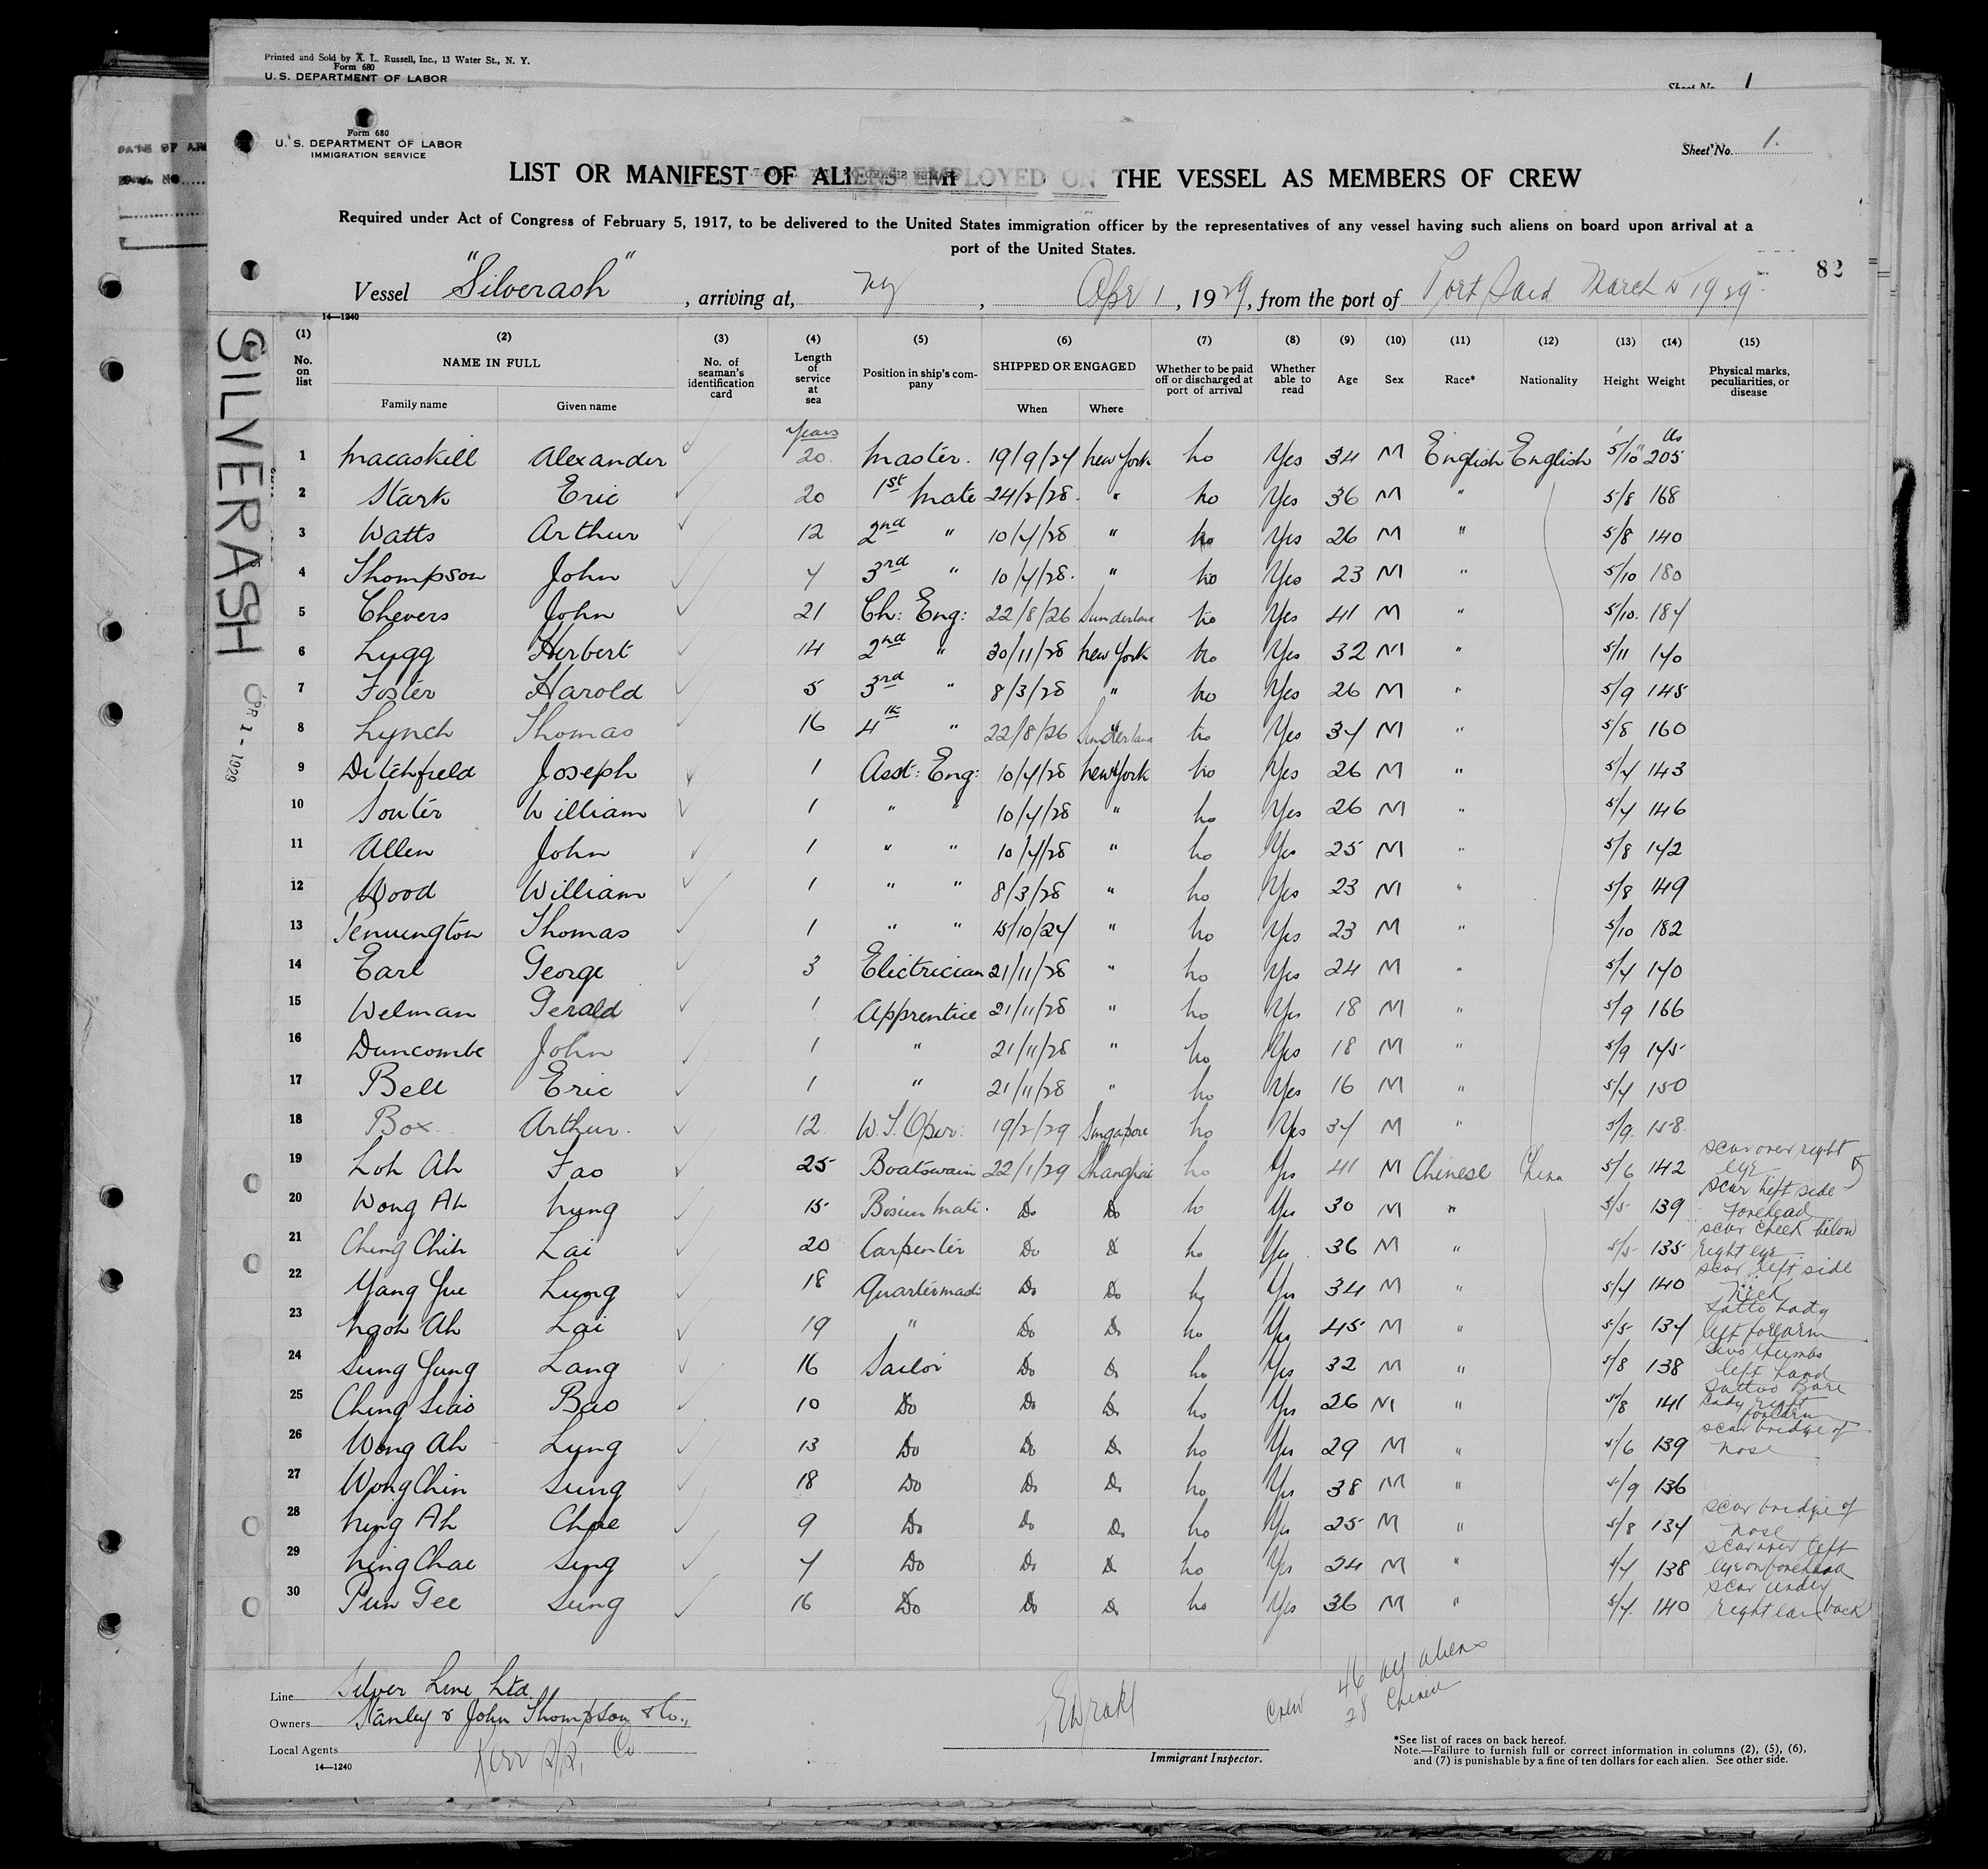 Printed and Sold by A. L. Russell, Inc., 13 Water St., N. Y.
Form 680
U. S. DEPARTMENT OF LABOR
Sheet No. 1
Form 680
U. S. DEPARTMENT OF LABOR
IMMIGRATION SERVICE
Sheet No. 1.
LIST OR MANIFEST OF ALIENS EMPLOYED ON THE VESSEL AS MEMBERS OF CREW
Required under Act of Congress of February 5, 1917, to be delivered to the United States immigration officer by the representatives of any vessel having such aliens on board upon arrival at a
port of the United States.
82
Vessel "Silverash", arriving at, NY, Apr 1, 1929, from the port of Port Said March 1929
14—1240
SILVERASH
APR 1 - 1929
(1) (2) (3) (4) (5) (6) (7) (8) (9) (10) (11) (12) (13) (14) (15)
No. on list NAME IN FULL Family name Given name No. of seaman's identification card Length of service at sea Position in ship's company SHIPPED OR ENGAGED When Where Whether to be paid off or discharged at port of arrival Whether able to read Age Sex Race* Nationality Height Weight Physical marks, peculiarities, or disease
Years lbs
1 Macaskill Alexander 20 Master. 19/9/27 New York No Yes 34 M English English 5/10 205
2 Stark Eric 20 1st Mate 24/2/28 " No Yes 36 M " 5/8 168
3 Watts Arthur 12 2nd " 10/7/28 " No Yes 26 M " 5/8 140
4 Thompson John 7 3rd " 10/7/28 " No Yes 23 M " 5/10 180
5 Chevers John 21 Ch: Eng: 22/8/26 Sunderland No Yes 41 M " 5/10 187
6 Lugg Herbert 14 2nd " 30/11/28 New York No Yes 32 M " 5/11 170
7 Foster Harold 5 3rd " 8/3/28 " No Yes 26 M " 5/9 145
8 Lynch Thomas 16 4th " 22/8/26 Sunderland No Yes 37 M " 5/8 160
9 Ditchfield Joseph 1 Asst: Eng: 10/7/28 New York No Yes 26 M " 5/7 143
10 Souter William 1 " " 10/7/28 " No Yes 26 M " 5/7 146
11 Allen John 1 " " 10/7/28 " No Yes 25 M " 5/8 172
12 Wood William 1 " " 8/3/28 " No Yes 23 M " 5/8 149
13 Pennington Thomas 1 " " 15/10/27 " No Yes 23 M " 5/10 182
14 Earl George 3 Electrician 21/11/28 " No Yes 24 M " 5/7 170
15 Welman Gerald 1 Apprentice 21/11/28 " No Yes 18 M " 5/9 166
16 Duncombe John 1 " 21/11/28 " No Yes 18 M " 5/9 145
17 Bell Eric 1 " 21/11/28 " No Yes 16 M " 5/7 150
18 Box Arthur 12 W.T. Oper: 19/2/29 Singapore No Yes 37 M " 5/9 158
19 Loh Ah Fao 25 Boatswain 22/1/29 Shanghai No Yes 41 M Chinese China 5/6 142 scar over right eye
20 Wong Ah Nung 15 Bosun Mate Do Do No Yes 30 M " 5/5 139 scar left side forehead
21 Ching Chih Lai 20 Carpenter Do Do No Yes 36 M " 5/5 135 scar cheek below right eye
22 Yang Yue Lung 18 Quartermaster Do Do No Yes 34 M " 5/7 140 scar left side neck
23 Ngoh Ah Lai 19 " Do Do No Yes 45 M " 5/5 137 tatto lady left forearm
24 Sung Yung Lang 16 Sailor Do Do No Yes 32 M " 5/8 138 two thumbs left hand
25 Ching Siao Bao 10 Do Do Do No Yes 26 M " 5/8 141 tattoo Bare lady right forearm
26 Wong Ah Lung 13 Do Do Do No Yes 29 M " 5/6 139 scar bridge of nose
27 Wong Chin Sung 18 Do Do Do No Yes 38 M " 5/9 136
28 Ning Ah Chae 9 Do Do Do No Yes 25 M " 5/8 137 scar bridge of nose
29 Ning Chae Sing 7 Do Do Do No Yes 24 M " 5/7 138 scar over left eye on forehead
30 Pun Gee Sung 16 Do Do Do No Yes 36 M " 5/7 140 scar under right ear back
Line Silver Line Ltd.
Owners Stanley & John Thompson & Co.,
Local Agents Kerr S/S. Co
14—1240
Immigrant Inspector.
Crew 46 all aliens
28 Chinese
*See list of races on back hereof.
Note.—Failure to furnish full or correct information in columns (2), (5), (6),
and (7) is punishable by a fine of ten dollars for each alien. See other side.